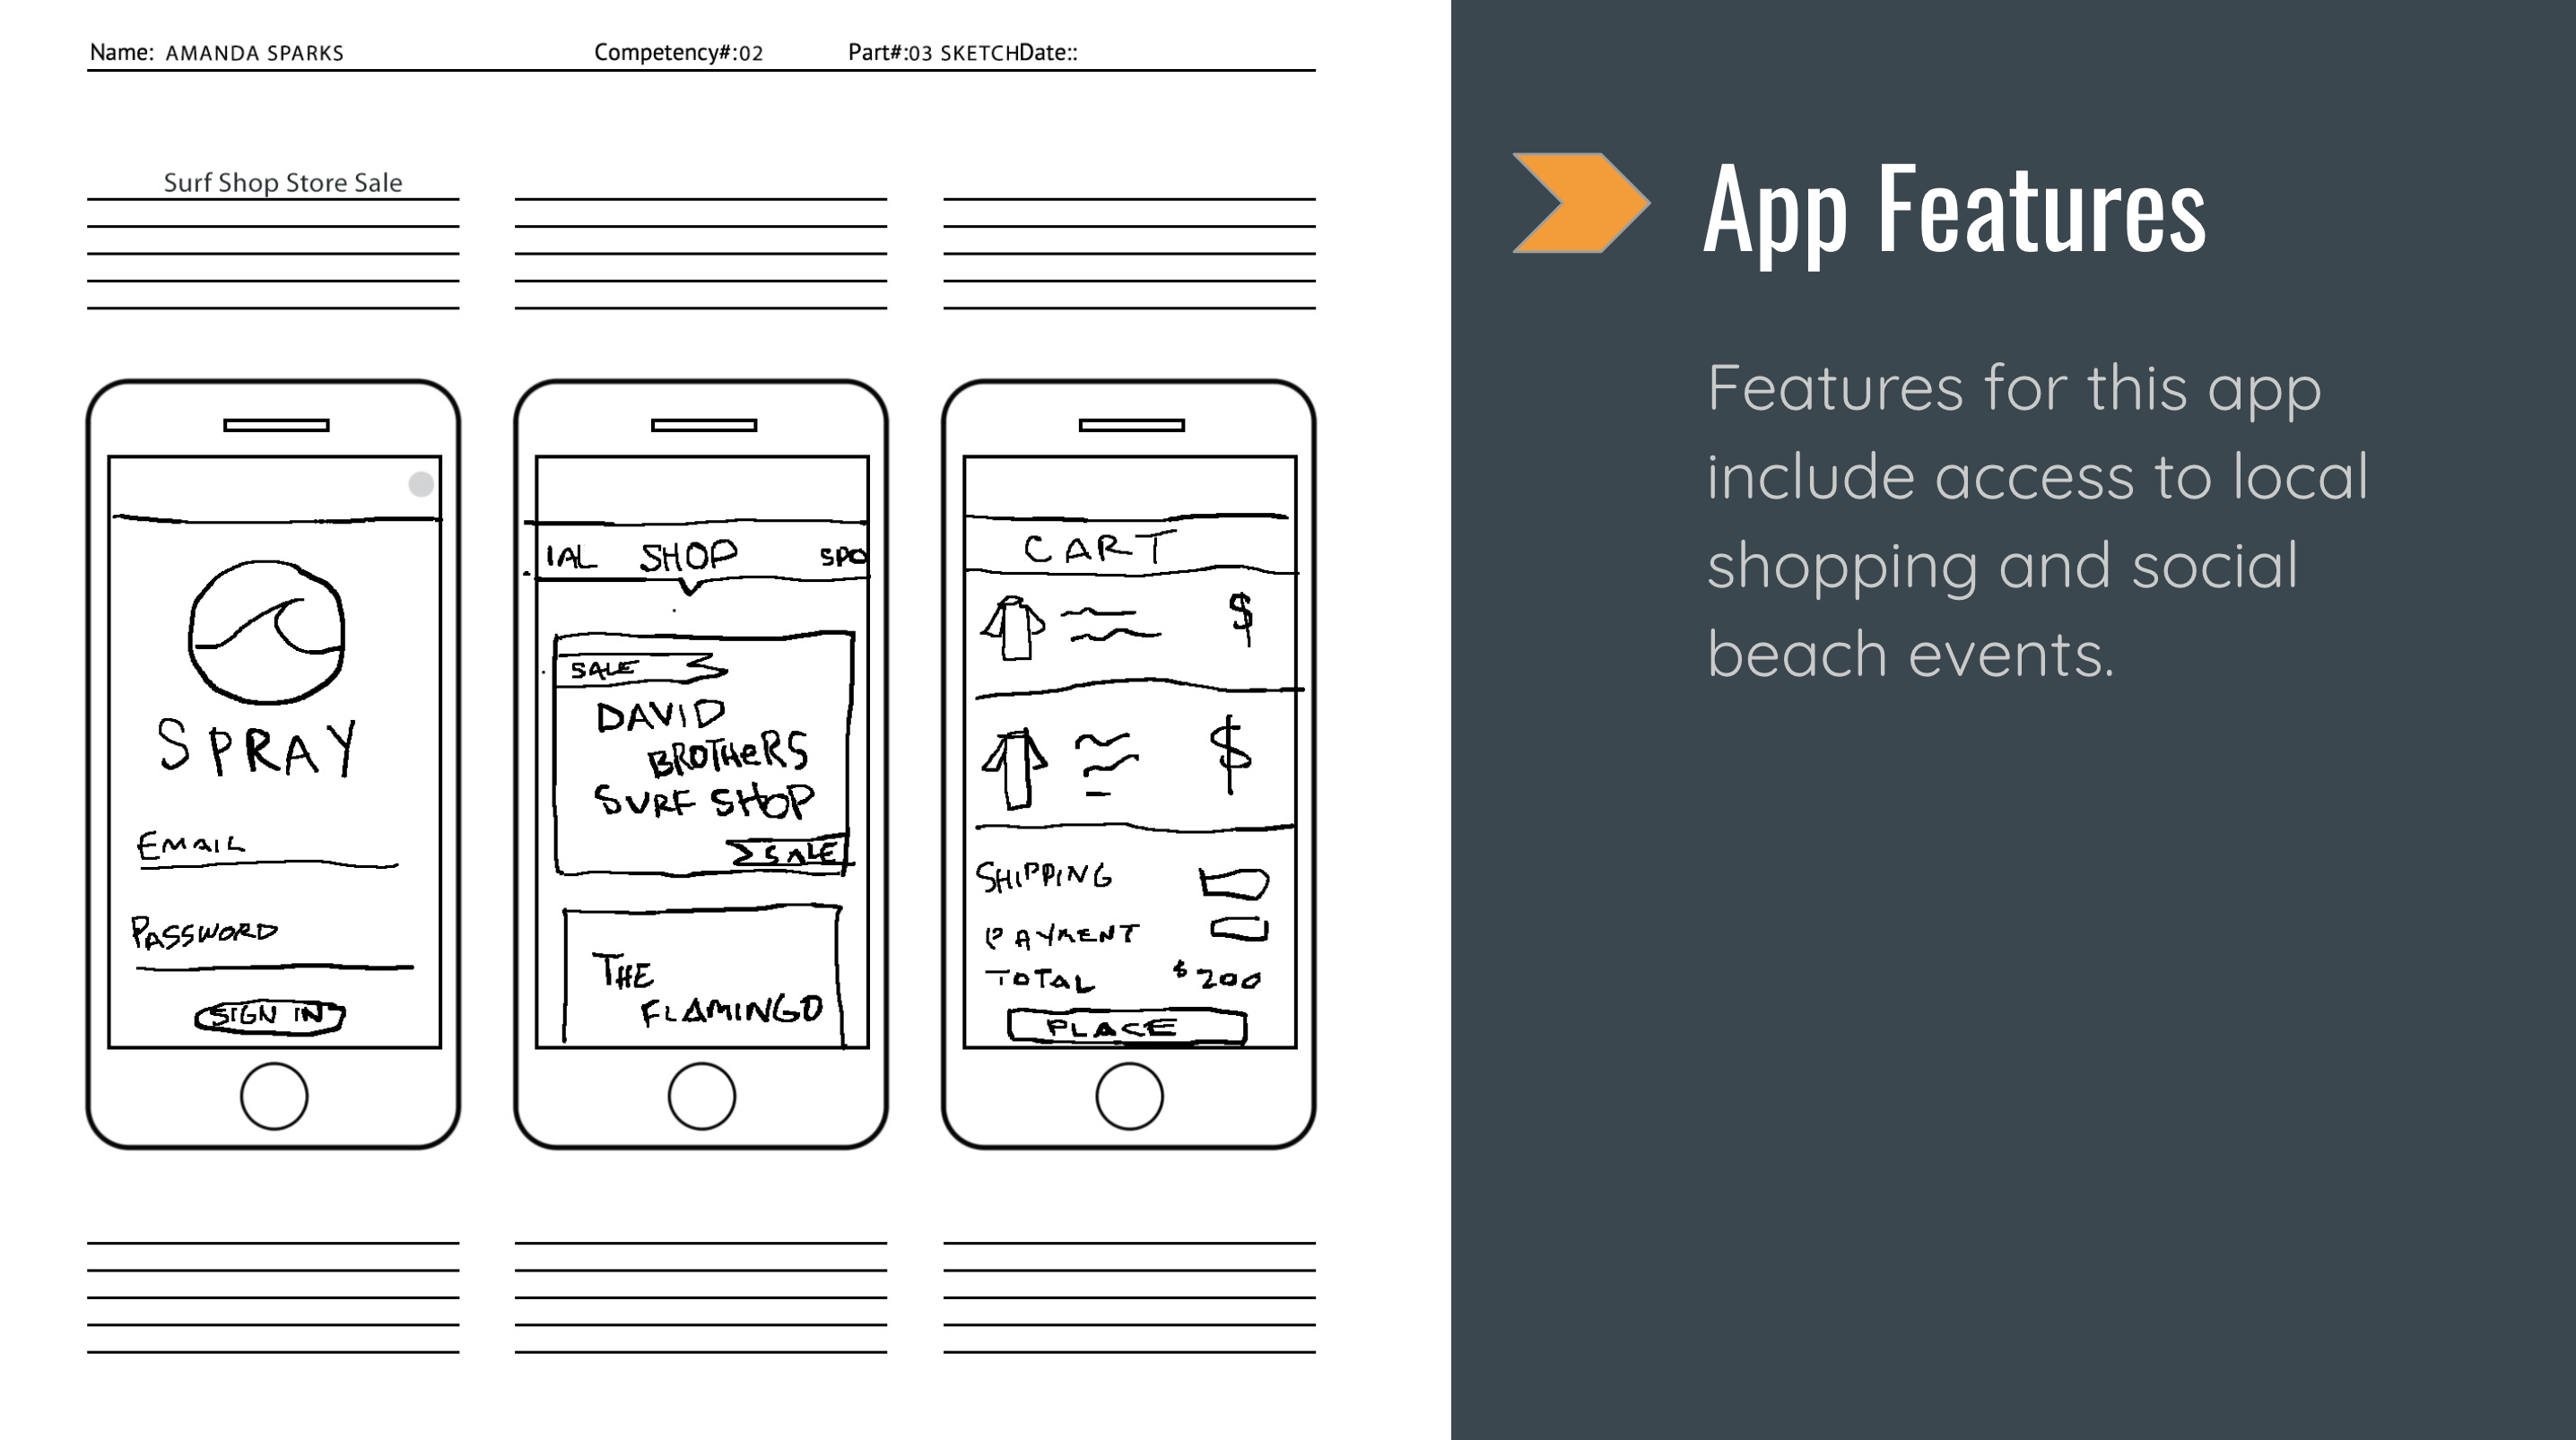 Name: AMANDA SPARKS Competency#:02 Part#:03 SKETCHDate::
Surf Shop Store Sale
SPRAY
EMAIL
PASSWORD
SIGN IN
IAL SHOP SPO
SALE
DAVID
BROTHERS
SURF SHOP
SALE
THE
FLAMINGO
CART
$
$
SHIPPING
PAYMENT
TOTAL $200
PLACE
App Features
Features for this app
include access to local
shopping and social
beach events.